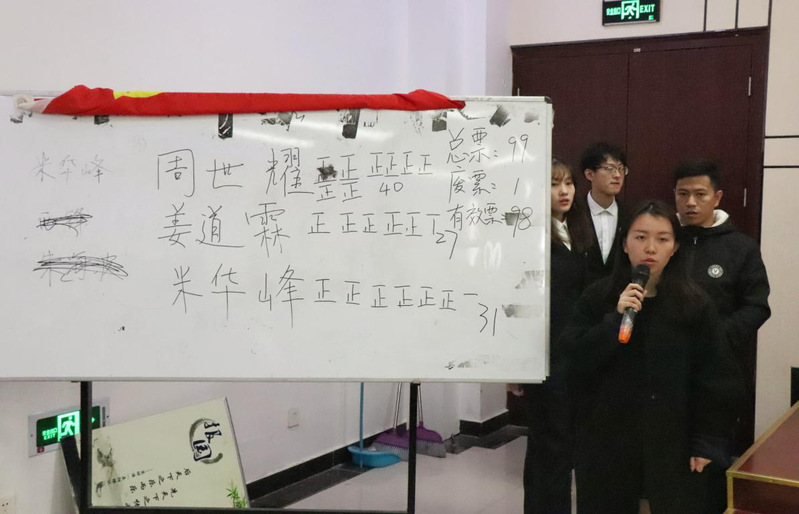 安全出口 EXIT
总票: 99
废票: 1
有效票: 98
米华峰
周世耀 正正正正正正正正 40
姜道霖 正正正正正丅 27
米华峰 正正正正正正一 31
EXIT
报国